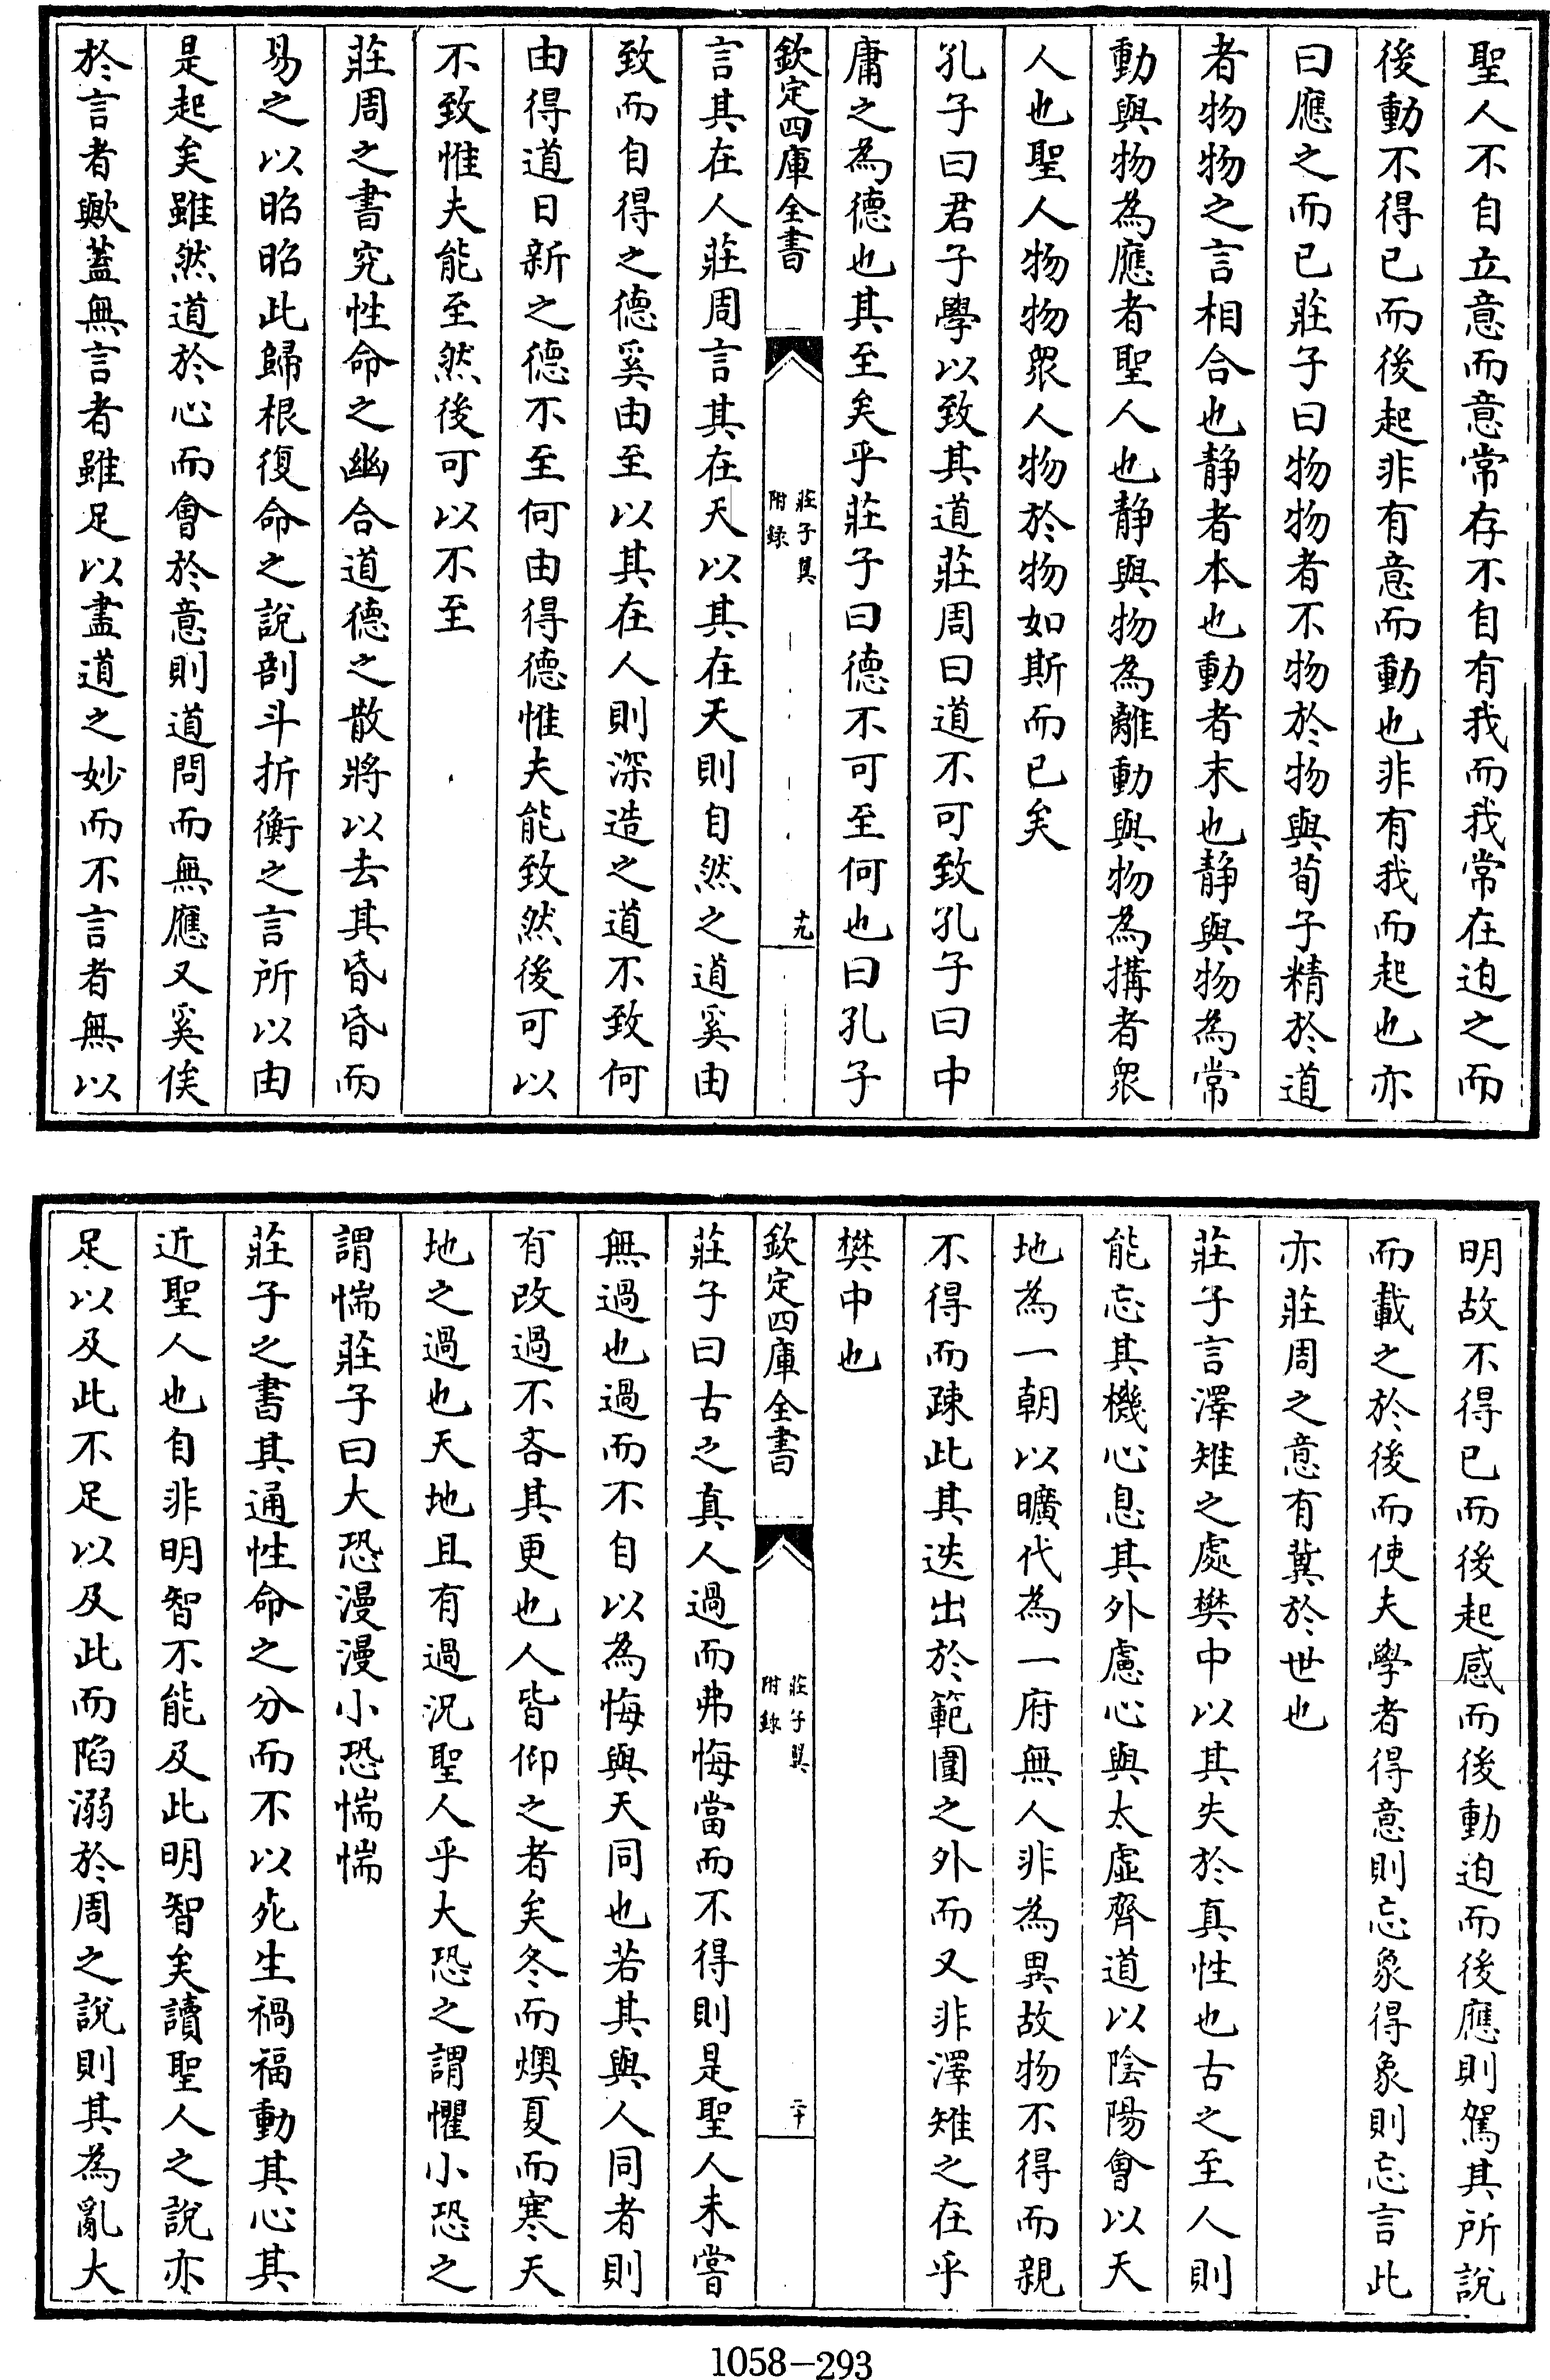 聖人不自立意而意常存不自有我而我常在迫之而
後動不得已而後起非有意而動也非有我而起也亦
曰應之而已莊子曰物物者不物於物與荀子精於道
者物物之言相合也静者本也動者末也静與物為常
動與物為應者聖人也静與物為離動與物為搆者衆
人也聖人物物衆人物於物如斯而已矣
孔子曰君子學以致其道莊周曰道不可致孔子曰中
庸之為德也其至矣乎莊子曰德不可至何也曰孔子
欽定四庫全書
莊子翼
附録
十九
言其在人莊周言其在天以其在天則自然之道奚由
致而自得之德奚由至以其在人則深造之道不致何
由得道日新之德不至何由得德惟夫能致然後可以
不致惟夫能至然後可以不至
莊周之書究性命之幽合道德之散將以去其昏昏而
易之以昭昭此歸根復命之說剖斗折衡之言所以由
是起矣雖然道於心而會於意則道問而無應又奚俟
於言者歟蓋無言者雖足以盡道之妙而不言者無以
明故不得已而後起感而後動迫而後應則駕其所說
而載之於後而使夫學者得意則忘象得象則忘言此
亦莊周之意有冀於世也
莊子言澤雉之處樊中以其失於真性也古之至人則
能忘其機心息其外慮心與太虛齊道以陰陽會以天
地為一朝以曠代為一府無人非為異故物不得而親
不得而疎此其迭出於範圍之外而又非澤雉之在乎
樊中也
欽定四庫全書
莊子翼
附録
二十
莊子曰古之真人過而弗悔當而不得則是聖人未嘗
無過也過而不自以為悔與天同也若其與人同者則
有改過不吝其更也人皆仰之者矣冬而燠夏而寒天
地之過也天地且有過況聖人乎大恐之謂懼小恐之
謂惴莊子曰大恐漫漫小恐惴惴
莊子之書其通性命之分而不以死生禍福動其心其
近聖人也自非明智不能及此明智矣讀聖人之說亦
足以及此不足以及此而陷溺於周之說則其為亂大
1058-293